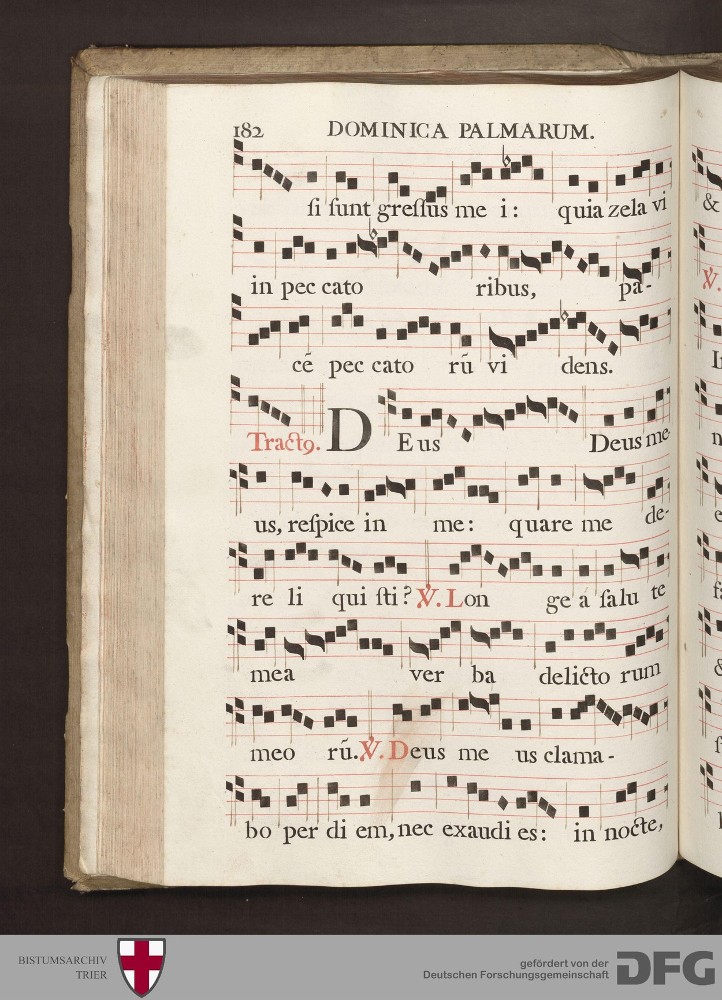 182 DOMINICA PALMARUM.
ſi ſunt greſſus me i: quia zela vi
in pec cato ribus, pa-
cẽ pec cato rũ vi dens.
Tractꝯ. D E us Deus me-
us, reſpice in me: quare me de-
re li qui ſti? ℣. Lon ge á ſalu te
mea ver ba delicto rum
meo rũ. ℣. Deus me us clama-
bo per di em, nec exaudi es: in nocte,
&
℣.
BISTUMSARCHIV
TRIER
gefördert von der
Deutschen Forschungsgemeinschaft
DFG